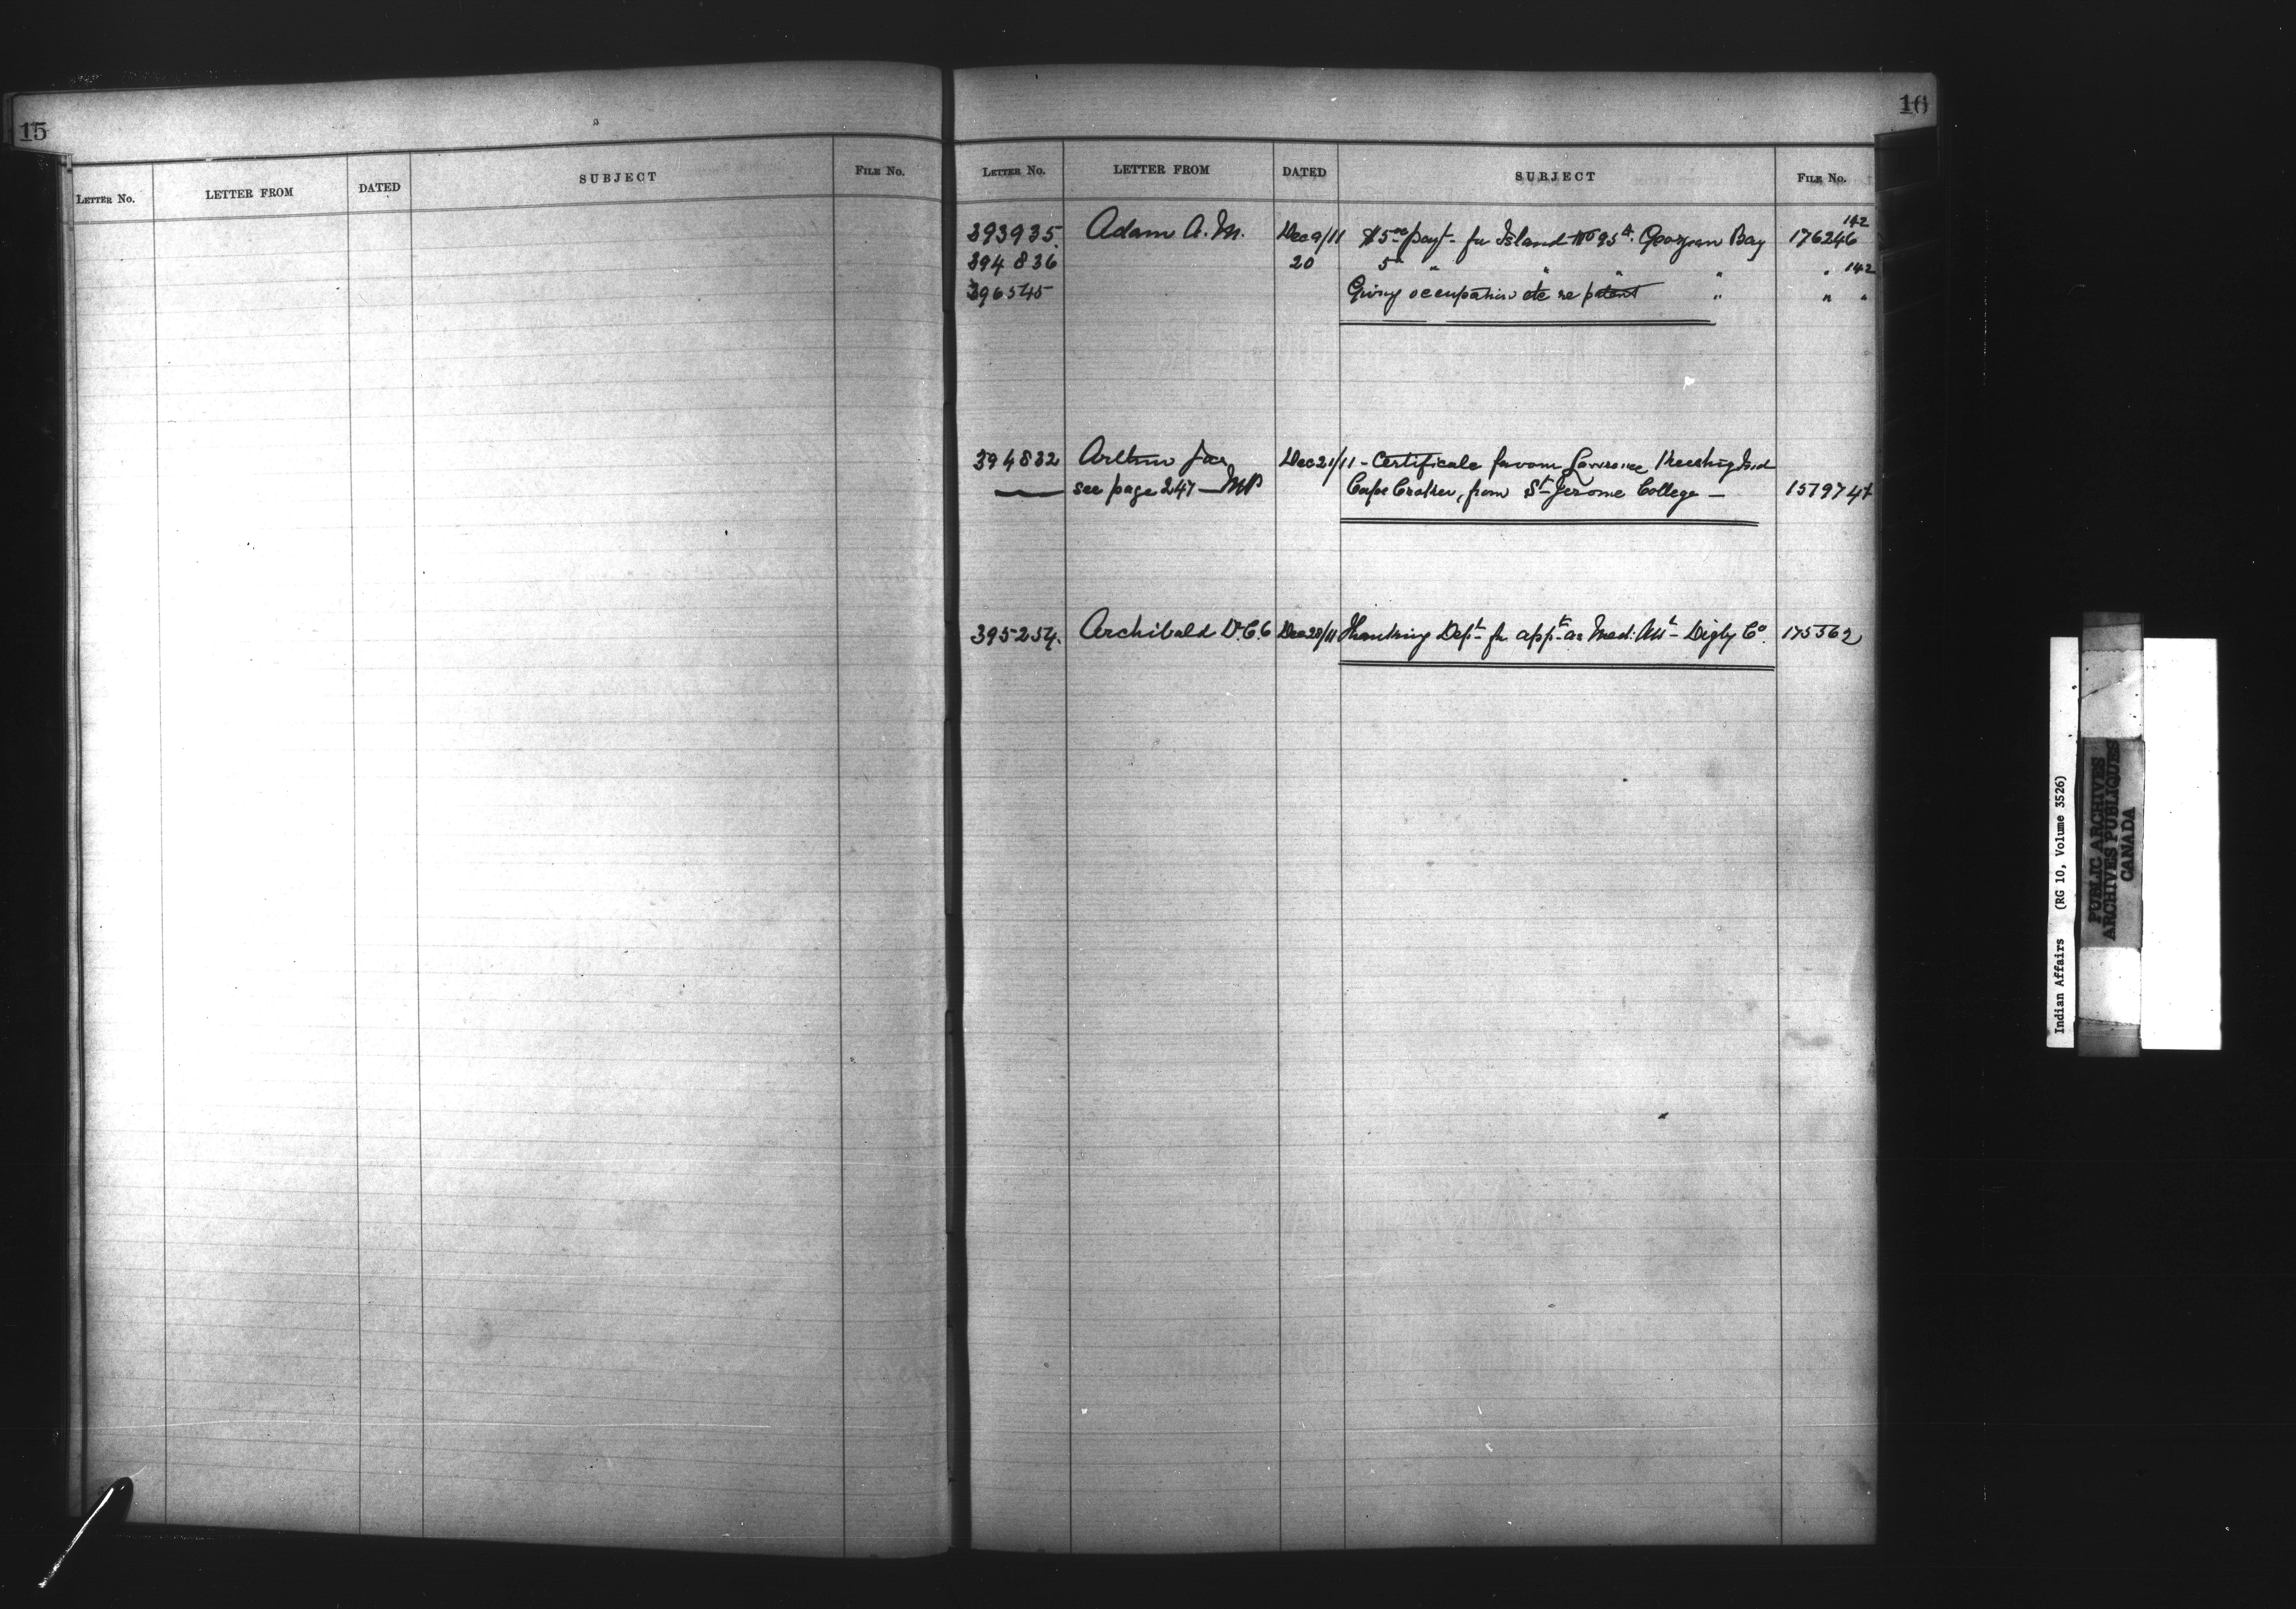 15
LETTER NO. LETTER FROM DATED SUBJECT FILE NO.
16
LETTER NO. LETTER FROM DATED SUBJECT FILE NO.
393935 Adam A. M. Dec 9/11 $5.00 payt for Island No 95 A. Georgian Bay 176246 142
394836 20 5 " " " " " 142
396545 Giving occupation etc re patent " " "
394832 Dec 21/11 - Certificate favour Lawrence Ind
see page 247 — MP Cape Croker, from St Jerome College — 157974
395254. Archibald Dec 28/11 Thanking Dept for appt as Med: Att Digby Co. 175362
Indian Affairs (RG 10, Volume 3526)
PUBLIC ARCHIVES
ARCHIVES PUBLIQUES
CANADA